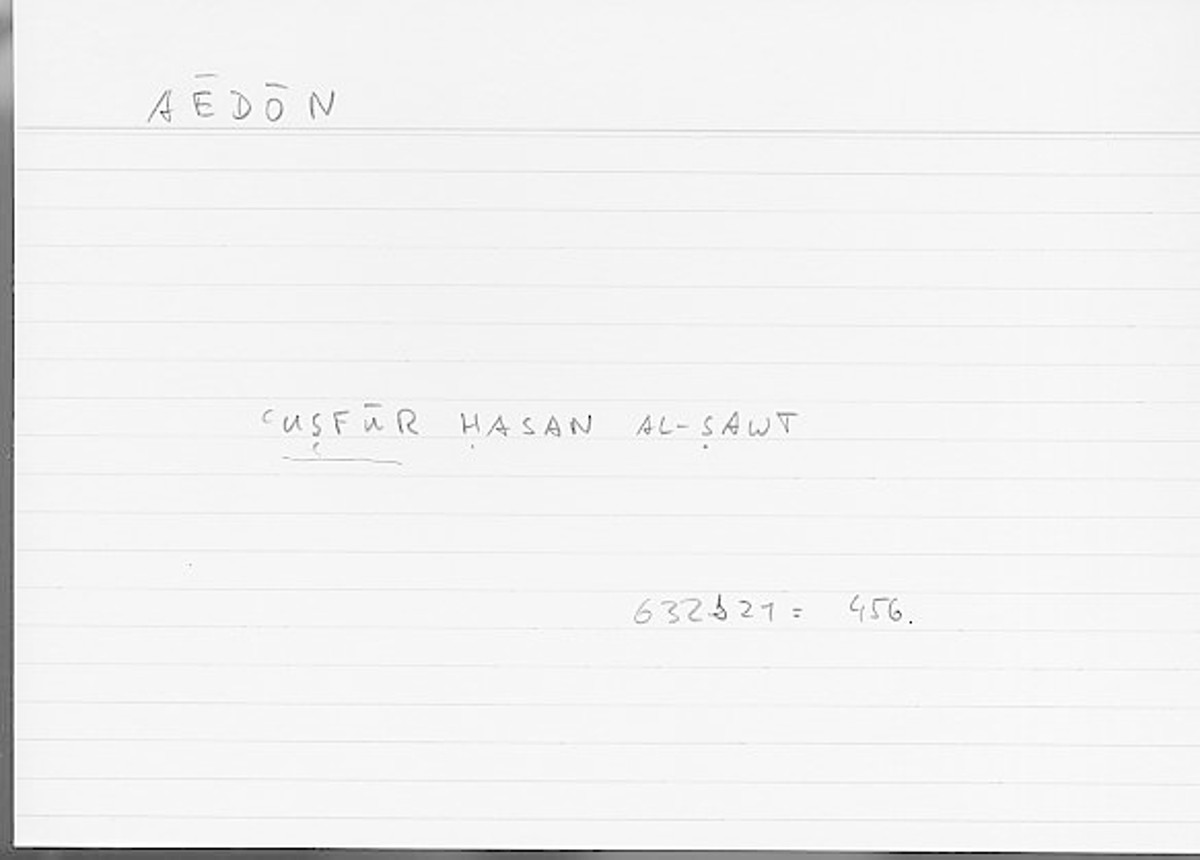 AĒDŌN
ʿUṢFŪR ḤASAN AL-ṢAWT
632b21 = 456.